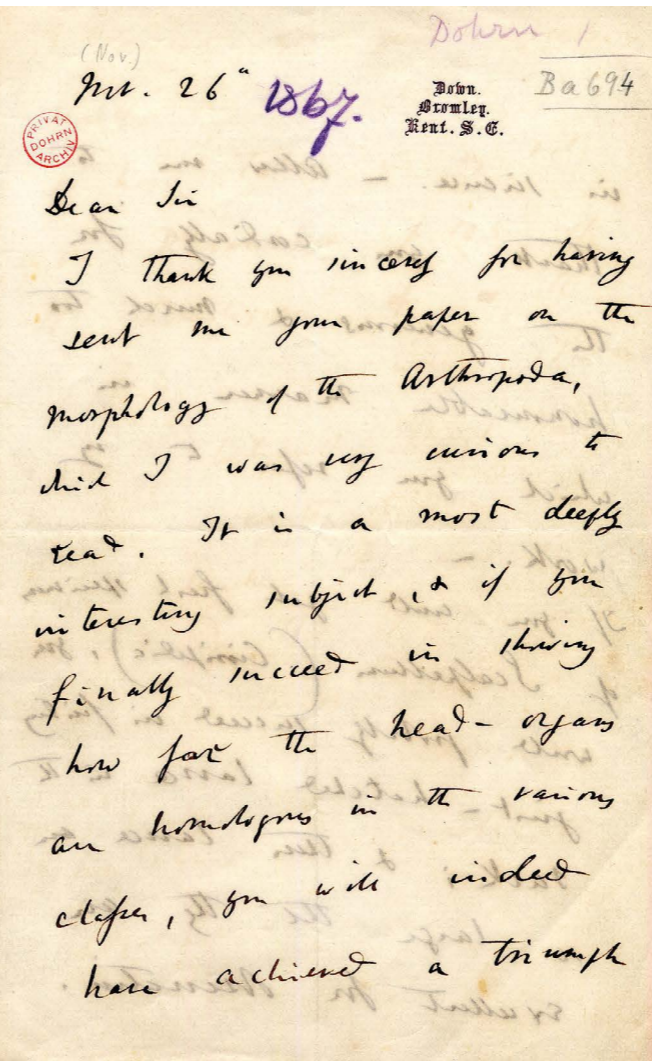 Dohrn 1
(Nov.)
Nov. 26th 1867.
Down.
Bromley.
Kent. S.E.
Ba 694
PRIVAT
DOHRN
ARCHIV
Dear Sir
I thank you sincerely for having
sent me your paper on the
morphology of the Arthropoda,
which I was very curious to
read. It is a most deeply
interesting subject, & if you
finally succeed in showing
how far the head-organs
are homologous in the various
classes, you will indeed
have achieved a triumph